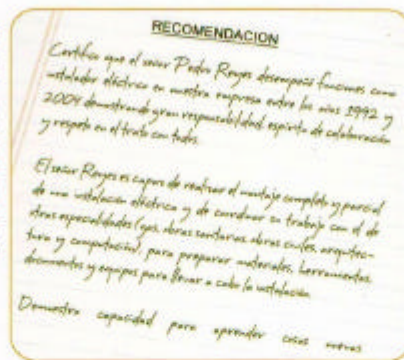 RECOMENDACION
Certifico que el señor Pedro Reyes desempeñó funciones como
instalador eléctrico en nuestra empresa entre los años 1992 y
2004 demostrando gran responsabilidad, espíritu de colaboración
y respeto en el trato con todos.
El señor Reyes es capaz de realizar el montaje completo y parcial
de una instalación eléctrica y de coordinar su trabajo con el de
otras especialidades (gas, obras sanitarias, obras civiles, arquitec-
tura y computación), para preparar materiales, herramientas,
documentos y equipos para llevar a cabo la instalación.
Demuestra capacidad para aprender cosas nuevas